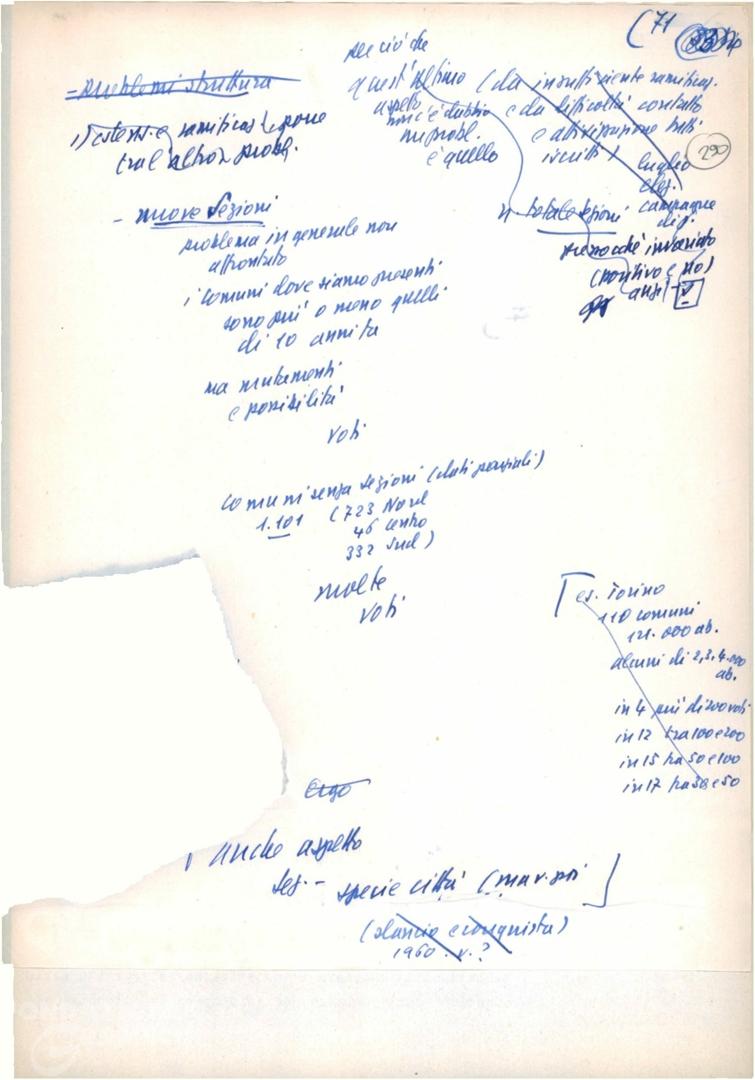 (71
290
- problemi struttura
1) estens. e ramificaz. pone
tra l'altro probl.
per ciò che
quest'ultimo (da insufficiente ramificaz.
aspetto e da difficoltà contatto
non c'è dubbio e attivizzazione tutti
un probl. iscritti)
è quello
luglio
elez.
campagne
- nuove sezioni
problema in generale non
affrontato
i comuni dove siamo presenti
sono più o meno quelli
di 10 anni fa
ma mutamenti
e possibilità
voti
n. totale sezioni
pressoché invariato
(positivo e no)
anzi
comuni senza sezioni (dati parziali)
1.101 (723 Nord
46 centro
332 sud)
molte
voti
es. Torino
110 comuni
121.000 ab.
alcuni di 2, 3, 4.000
ab.
in 4 più di 200 voti
in 12 tra 100 e 200
in 15 tra 50 e 100
in 17 tra 30 e 50
Ergo
anche aspetto
sez. - specie città
(slancio e conquista)
1960. v. ?